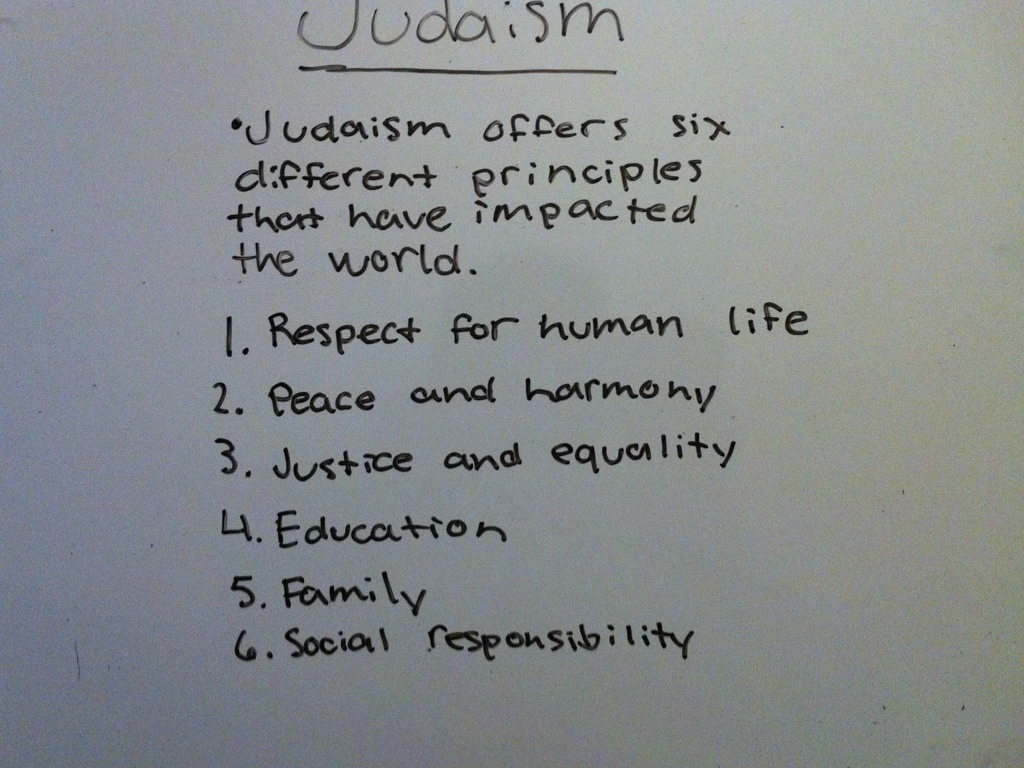 Judaism
•Judaism offers six
different principles
that have impacted
the world.
1. Respect for human life
2. Peace and harmony
3. Justice and equality
4. Education
5. Family
6. Social responsibility